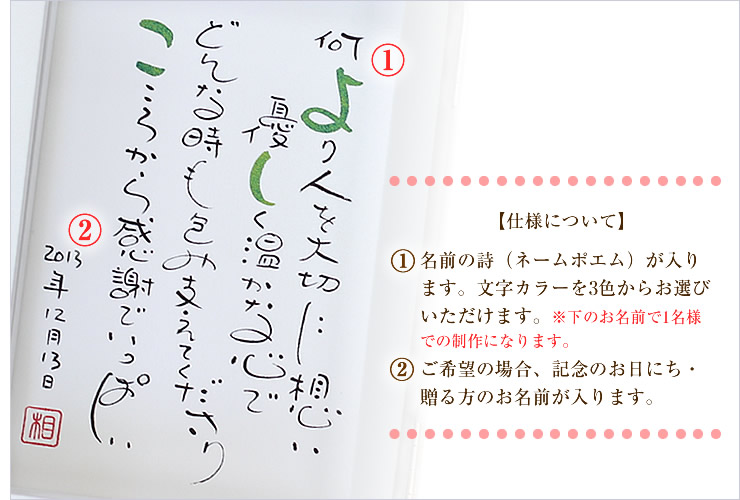 ①
何より人を大切に想い
優しく温かな心で
どんな時も包み支えてくださり
こころから感謝でいっぱい
②
2013年12月13日
相
【仕様について】
①名前の詩（ネームポエム）が入り
ます。文字カラーを3色からお選び
いただけます。※下のお名前で1名様
での制作になります。
②ご希望の場合、記念のお日にち・
贈る方のお名前が入ります。